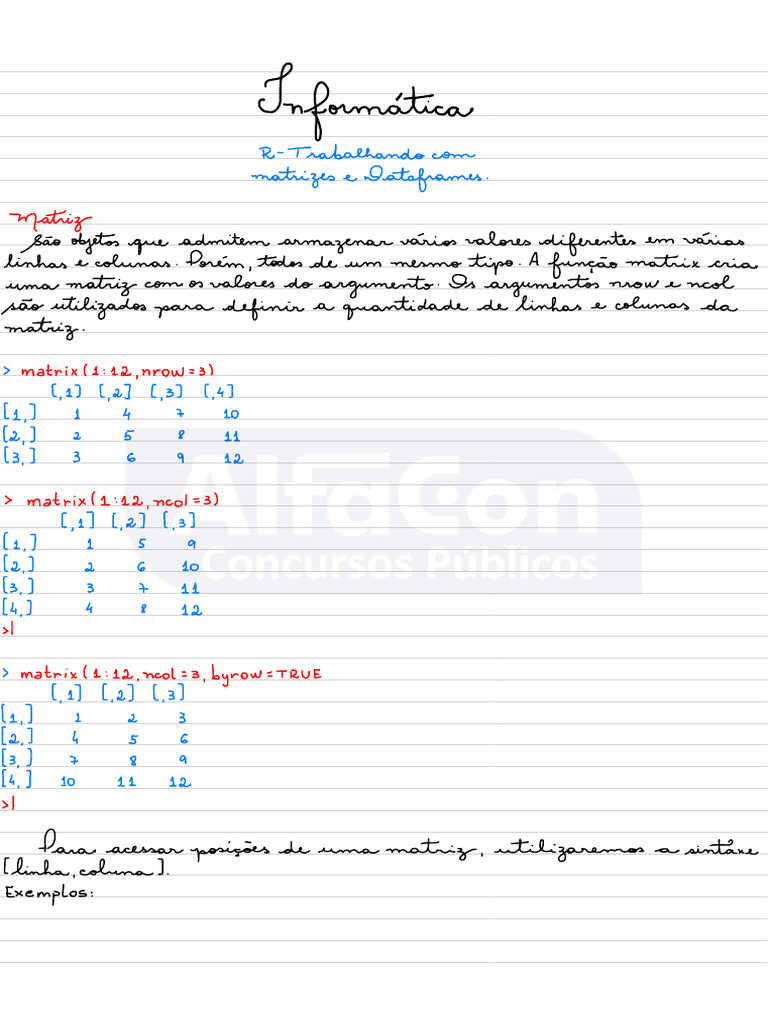 Informática
R-Trabalhando com
matrizes e Dataframes.
Matriz
São objetos que admitem armazenar vários valores diferentes em várias
linhas e colunas. Porém, todos de um mesmo tipo. A função matrix cria
uma matriz com os valores do argumento. Os argumentos nrow e ncol
são utilizados para definir a quantidade de linhas e colunas da
matriz.
> matrix(1:12,nrow=3)
[,1) [,2] [,3) [,4]
[1,] 1 4 7 10
[2,] 2 5 8 11
[3,] 3 6 9 12
AlfaCon
Concursos Públicos
> matrix(1:12,ncol=3)
[,1] [,2] [,3]
[1,] 1 5 9
[2,] 2 6 10
[3,] 3 7 11
[4,] 4 8 12
>|
> matrix(1:12,ncol=3,byrow=TRUE
[,1] [,2] [,3]
[1,] 1 2 3
[2,] 4 5 6
[3,] 7 8 9
[4,] 10 11 12
>|
Para acessar posições de uma matriz, utilizaremos a sintáxe
[linha,coluna].
Exemplos: